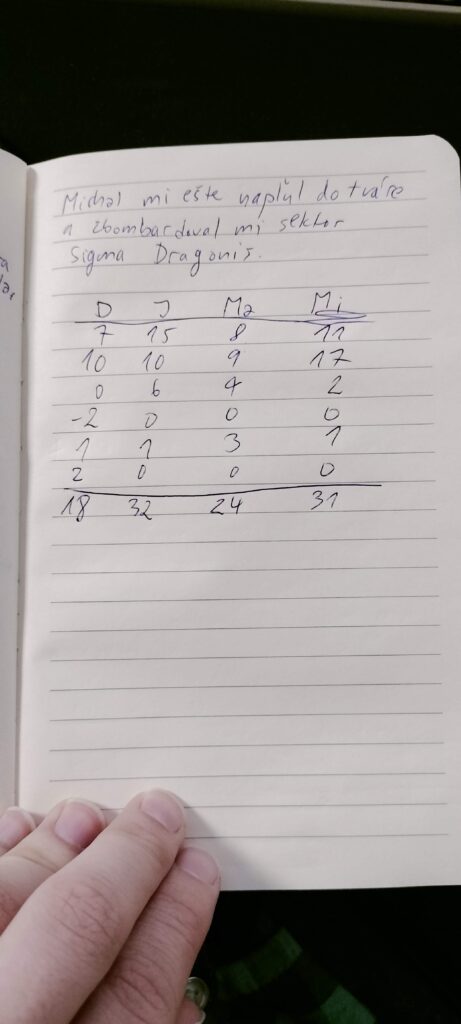 Michal mi ešte napľul do tváre
a zbombardoval mi sektor
Sigma Dragonis.
D J Ma Mi
7 15 8 11
10 10 9 17
0 6 4 2
-2 0 0 0
1 1 3 1
2 0 0 0
18 32 24 31